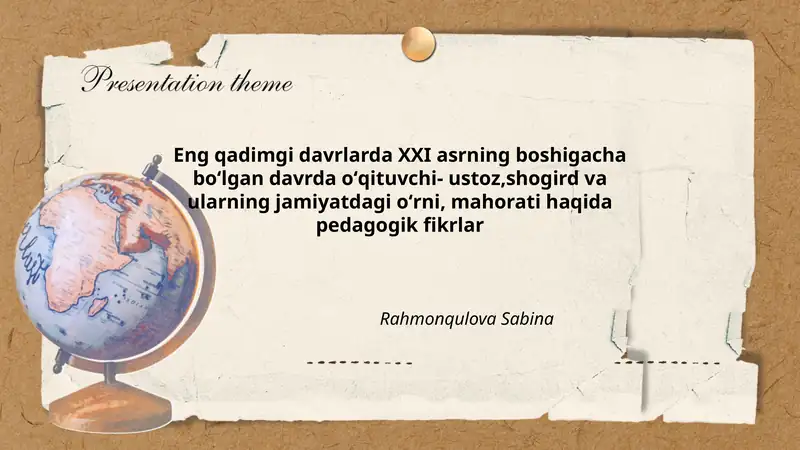 Presentation theme
Eng qadimgi davrlarda XXI asrning boshigacha
bo‘lgan davrda o‘qituvchi- ustoz,shogird va
ularning jamiyatdagi o‘rni, mahorati haqida
pedagogik fikrlar
Rahmonqulova Sabina